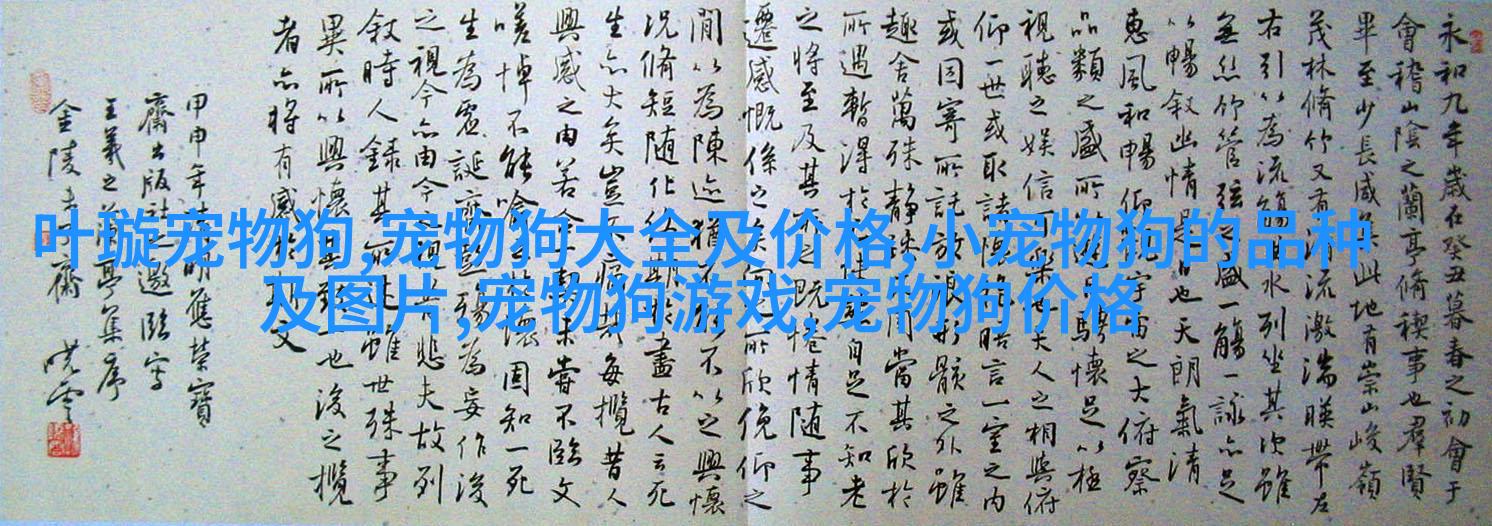 叶璇宠物狗,宠物狗大全及价格,小宠物狗的品种
及图片,宠物狗游戏,宠物狗价格
永和九年歲在癸丑暮春之初會于
會稽山陰之蘭亭脩禊事也羣賢
畢至少長咸集此地有崇山峻嶺
茂林脩竹又有清流激湍暎帶左
右引以為流觴曲水列坐其次雖
無絲竹管弦之盛一觴一詠亦足
以暢敘幽情是日也天朗氣清
惠風和暢仰觀宇宙之大俯察
品類之盛所以遊目騁懷足以極
視聽之娛信可樂也夫人之相與俯
仰一世或取諸懷抱悟言一室之內
或因寄所託放浪形骸之外雖
趣舍萬殊靜躁不同當其欣於
所遇暫得於己快然自足不知老
之將至及其所之既惓情隨事
遷感慨係之矣向之所欣俛仰之
間以為陳迹猶不能不以之興懷
況脩短隨化終期於盡古人云死
生亦大矣豈不痛哉每攬昔人
興感之由若合一契未嘗不臨文
嗟悼不能喻之於懷固知一死
生為虛誕齊彭殤為妄作後
之視今亦由今之視昔悲夫故列
敘時人錄其所述雖世殊事
異所以興懷其致一也後之攬
者亦將有感於斯文
甲申年清明應榮寶
齋出版社之邀臨寫
王羲之蘭亭集序
金陵 齋 曉雲